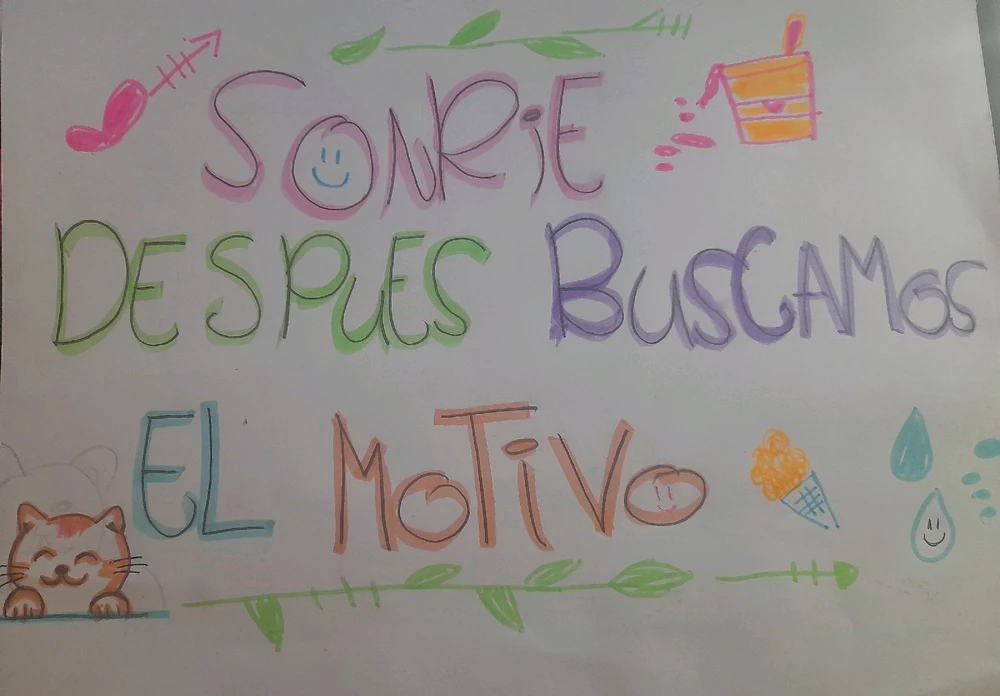 SONRiE
DESPUES BUSCAMOS
EL MOTiVO